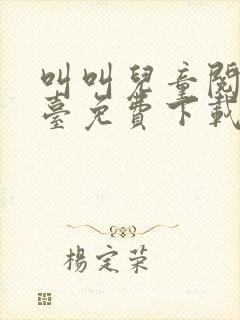 叫叫兒童閱
臺免費下載
楊定榮